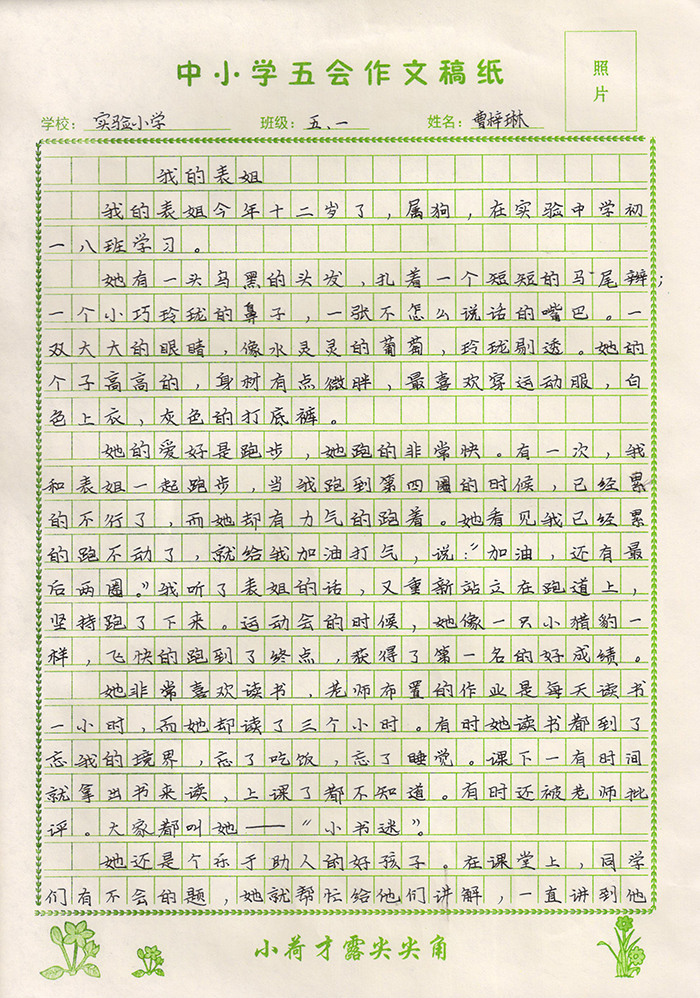 中小学五会作文稿纸
照片
学校：实验小学 班级：五、一 姓名：曹梓琳
我的表姐
我的表姐今年十二岁了，属狗，在实验中学初
一八班学习。
她有一头乌黑的头发，扎着一个短短的马尾辫；
一个小巧玲珑的鼻子，一张不怎么说话的嘴巴。一
双大大的眼睛，像水灵灵的葡萄，玲珑剔透。她的
个子高高的，身材有点微胖，最喜欢穿运动服，白
色上衣，灰色的打底裤。
她的爱好是跑步，她跑的非常快。有一次，我
和表姐一起跑步，当我跑到第四圈的时候，已经累
的不行了，而她却有力气的跑着。她看见我已经累
的跑不动了，就给我加油打气，说：“加油，还有最
后两圈。”我听了表姐的话，又重新站立在跑道上，
坚持跑了下来。运动会的时候，她像一只小猎豹一
样，飞快的跑到了终点，获得了第一名的好成绩。
她非常喜欢读书，老师布置的作业是每天读书
一小时，而她却读了三个小时。有时她读书都到了
忘我的境界，忘了吃饭，忘了睡觉。课下一有时间
就拿出书来读，上课了都不知道。有时还被老师批
评。大家都叫她——“小书迷”。
她还是个乐于助人的好孩子。在课堂上，同学
们有不会的题，她就帮忙给他们讲解，一直讲到他
小荷才露尖尖角